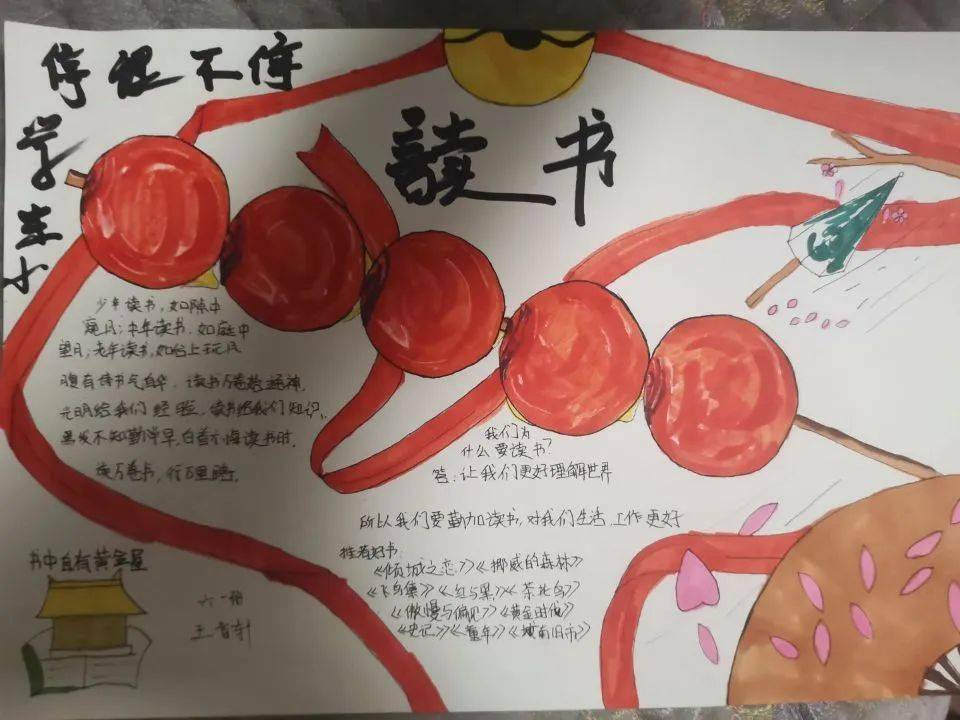 停课不停
学
小
读书
少年读书,如隙中
窥月;中年读书,如庭中
望月;老年读书,如台上玩月
腹有诗书气自华,读书万卷始通神。
光明给我们经验,读书给我们知识。
黑发不知勤学早,白首方悔读书时。
读万卷书,行万里路。
我们为
什么要读书?
答:让我们更好理解世界
所以我们要勤加读书,对我们生活、工作更好
推荐好书:
《倾城之恋》《挪威的森林》
《飞鸟集》《红与黑》《茶花女》
《傲慢与偏见》《黄金时代》
《史记》《童年》《城南旧市》
书中自有黄金屋
六一班
王